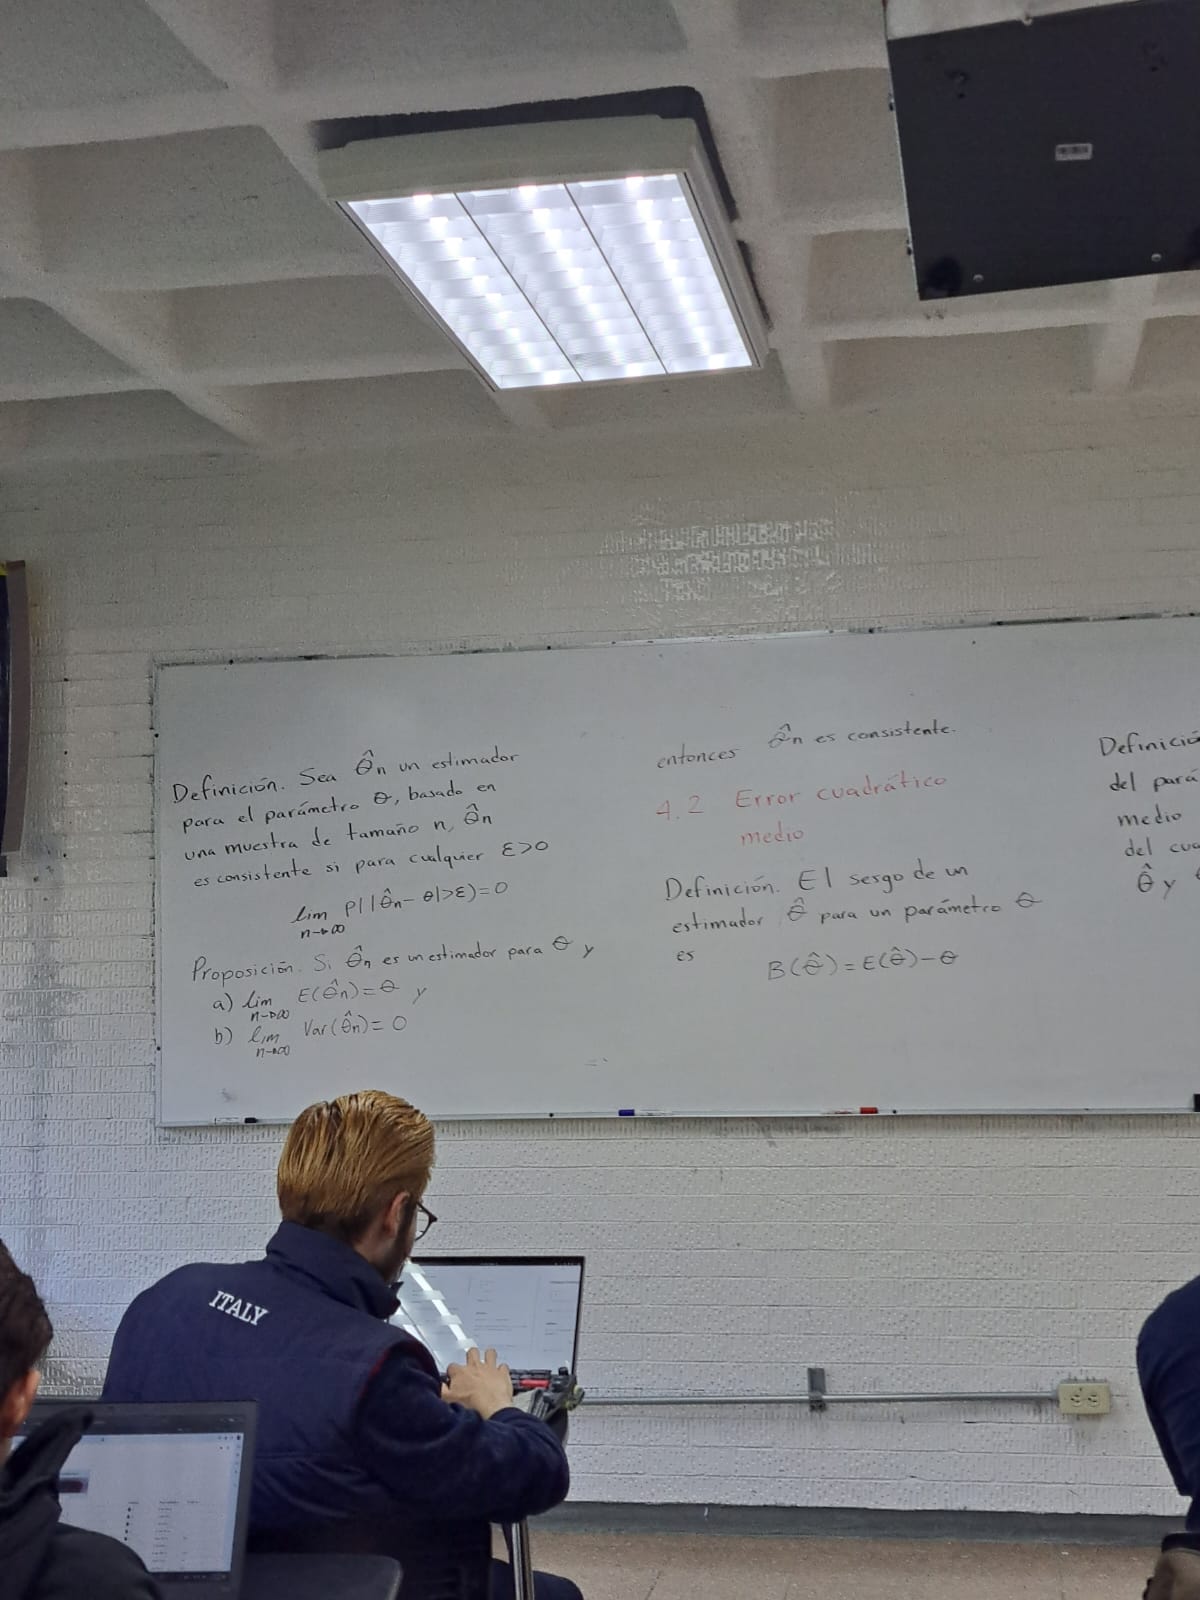 Definición. Sea θ̂n un estimador
para el parámetro θ, basado en
una muestra de tamaño n, θ̂n
es consistente si para cualquier ε>0
lim P(|θ̂n-θ|>ε)=0
n→∞
Proposición. Si θ̂n es un estimador para θ y
a) lim E(θ̂n)=θ y
n→∞
b) lim Var(θ̂n)=0
n→∞
entonces θ̂n es consistente.
4.2 Error cuadrático
medio
Definición. El sesgo de un
estimador θ̂ para un parámetro θ
es
B(θ̂)=E(θ̂)-θ
Definició
del pará
medio
del cua
θ̂ y
ITALY